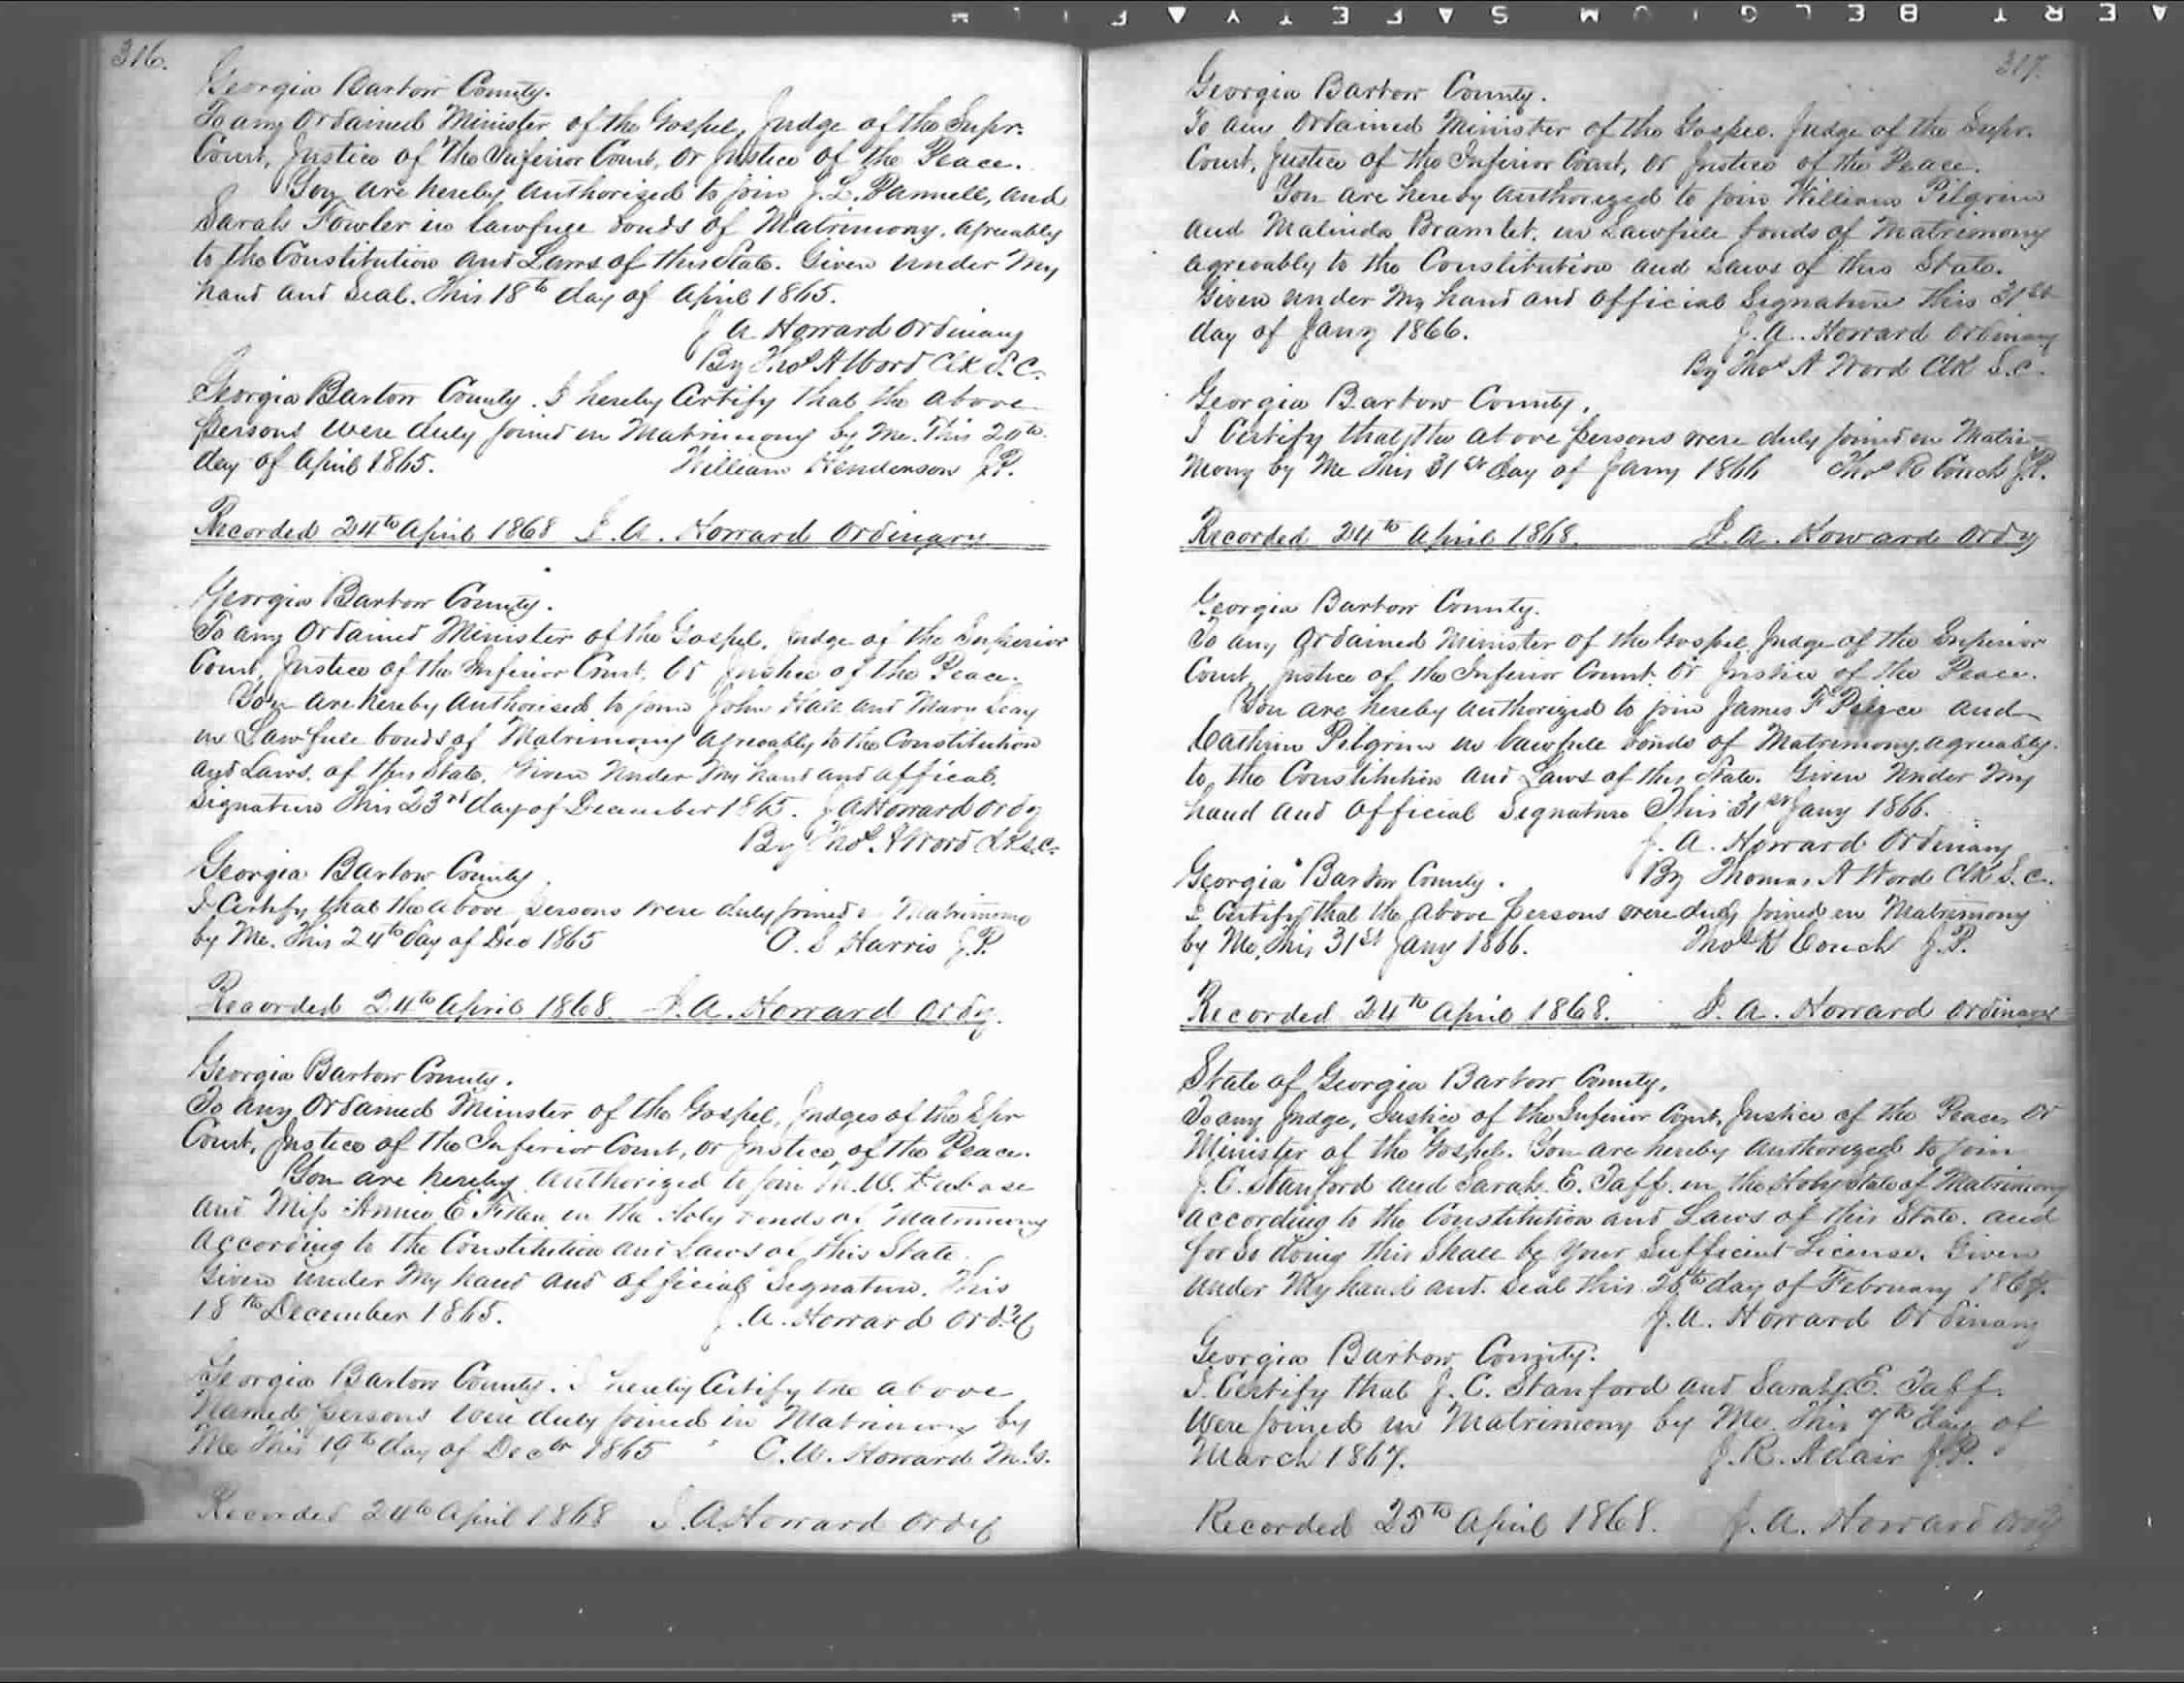 316.
Georgia Bartow County.
To any Ordained Minister of the Gospel, Judge of the Supr.
Court, Justice of the Inferior Court, or Justice of the Peace.
You are hereby authorised to join J. L. Pannell, and
Sarah Fowler in lawfull bonds of Matrimony. agreeably
to the Constitution and Laws of this State. Given under my
hand and Seal. This 18th day of April 1865.
J A. Howard Ordinary
By Thos A Word Clk S. C.
Georgia Bartow County. I hereby Certify that the above
persons were duly joined in Matrimony by me. This 20th
day of April 1865. William Henderson J.P.
Recorded 24th April 1868 J. A. Howard Ordinary
Georgia Bartow County.
To any Ordained Minister of the Gospel. Judge of the Superior
Court, Justice of the Inferior Court. Or Justice of the Peace.
You are hereby authorised to join John Hall and Mary
in Lawfull bonds of Matrimony agreeably to the Constitution
and Laws. of this State. Given under my hand and offical.
Signature This 23rd day of December 1865. J A Howard Ordy
By Thos A Word Clk S.C.
Georgia Bartow County
I Certify that the above persons were duly joined Matrimony
by Me. This 24th day of Dec 1865 O. S Harris J.P.
Recorded 24th April 1868 J. A. Howard Ordy.
Georgia Bartow County.
To any Ordained Minister of the Gospel, Judges of the Spr
Court, Justice of the Inferior Court, or Justice of the Peace.
You are hereby authorized to join M. W.
and Miss Annie E in the Holy bonds of Matrimony
According to the Constitution and Laws of this State.
Given under My hand and official Signature. This
18th December 1865. J. A. Howard Ordy
Georgia Bartow County. I hereby Certify the above
Named persons were duly joined in Matrimony by
Me This 19th day of Decbr 1865 C. W. Howard M.G.
Recorded 24th April 1868 J. A. Howard Ordy
317.
Georgia Bartow County.
To any Ordained Minister of the Gospel. Judge of the Supr.
Court, Justice of the Inferior Court, or Justice of the Peace.
You are hereby authorized to join William Pilgrim
and Malinda Bramlet. in Lawfull bonds of Matrimony
agreeably to the Constitution and Laws of this State.
Given under My hand and official Signature This 31st
day of Jany 1866. J. A. Howard Ordinary
By Thos A Word Clk S. C.
Georgia Bartow County.
I Certify that the above persons were duly joined in Matri-
mony by Me This 31st day of Jany 1866 Thos R Couch J.P.
Recorded 24th April 1868. J. A. Howard Ordy
Georgia Bartow County.
To any Ordained Minister of the Gospel Judge of the Superior
Court Justice of the Inferior Court. Or Justice of the Peace.
You are hereby authorized to join James F Peirce and
Cathrin Pilgrim in lawfull bonds of Matrimony, agreeably
to the Constitution and Laws of this State. Given under my
hand and official Signature This 31st Jany 1866.
J. A. Howard Ordinary
Georgia Bartow County. By Thomas A Word Clk S. C.
I Certify that the above persons were duly joined in Matrimony
by Me, This 31st Jany 1866. Thos R Couch J.P.
Recorded 24th April 1868. J. A. Howard Ordinary
State of Georgia Bartow County.
To any Judge, Justice of the Inferior Court, Justice of the Peace, Or
Minister of the Gospel. You are hereby authorized to join
J. C. Stanford and Sarah E. Taff. in the Holy State of Matrimony
According to the Constitution and Laws of this State. and
for So doing this Shall be Your Sufficient License. Given
under My hand and Seal this 26th day of February 1867.
J. A. Howard Ordinary
Georgia Bartow County.
I Certify that J. C. Stanford and Sarah E. Taff.
Were joined in Matrimony by Me This 7th day of
March 1867. J. R. Adair J.P.
Recorded 25th April 1868. J. A. Howard Ordy